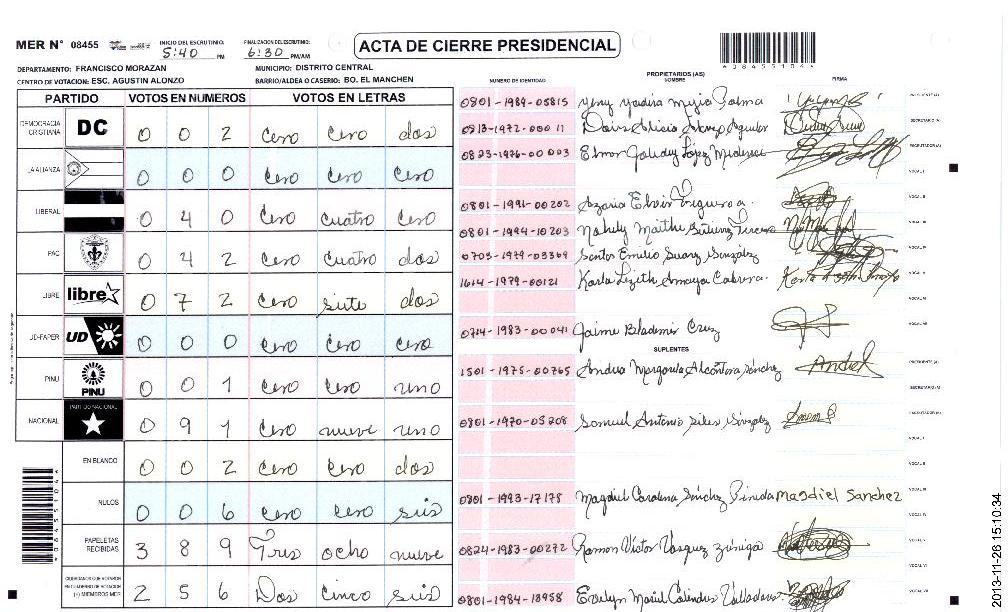 MER N° 08455
INICIO DEL ESCRUTINIO: 5:40 PM
FINALIZACION DEL ESCRUTINIO: 6:30 PM/AM
ACTA DE CIERRE PRESIDENCIAL
DEPARTAMENTO: FRANCISCO MORAZAN
MUNICIPIO: DISTRITO CENTRAL
CENTRO DE VOTACION: ESC. AGUSTIN ALONZO
BARRIO/ALDEA O CASERIO: BO. EL MANCHEN
PARTIDO VOTOS EN NUMEROS VOTOS EN LETRAS
DEMOCRACIA CRISTIANA DC 0 0 2 Cero Cero dos
LA ALIANZA 0 0 0 Cero Cero Cero
LIBERAL 0 4 0 Cero cuatro Cero
PAC 0 4 2 Cero Cuatro dos
LIBRE libre 0 7 2 Cero siete dos
UD-FAPER UD 0 0 0 Cero Cero Cero
PINU PINU 0 0 1 Cero Cero uno
NACIONAL PARTIDO NACIONAL 0 9 1 Cero nueve uno
EN BLANCO 0 0 2 Cero Cero dos
NULOS 0 0 6 Cero Cero seis
PAPELETAS RECIBIDAS 3 8 9 Tres ocho nueve
CIUDADANOS QUE VOTARON EN CUADERNO DE VOTACION (+) MIEMBROS MER 2 5 6 Dos cinco seis
NUMERO DE IDENTIDAD PROPIETARIOS (AS) NOMBRE FIRMA
0801-1989-05815 Yeny Yadira Mejia Palma
0813-1972-00011 Alicia
0823-1976-00003 López
0801-1991-00202 Elvir Figueroa
0801-1994-10203 Nohely Maithe
0703-1979-03369 Santos Emilio Suarez González
1614-1979-00121 Karla Lizeth Amaya Cabrera
0714-1983-00041 Jaime Blademir Cruz
SUPLENTES
1501-1975-00765 Andrea Margarita Alcántara Sánchez
0801-1970-05208 Samuel Antonio
0801-1993-17175 Magdiel Carolina Sánchez Pineda Magdiel Sanchez
0824-1983-00272 Ramon Victor Vasquez Zúniga
0801-1984-18958 Evelyn Mariel Valladares
2013-11-26 15:10:34